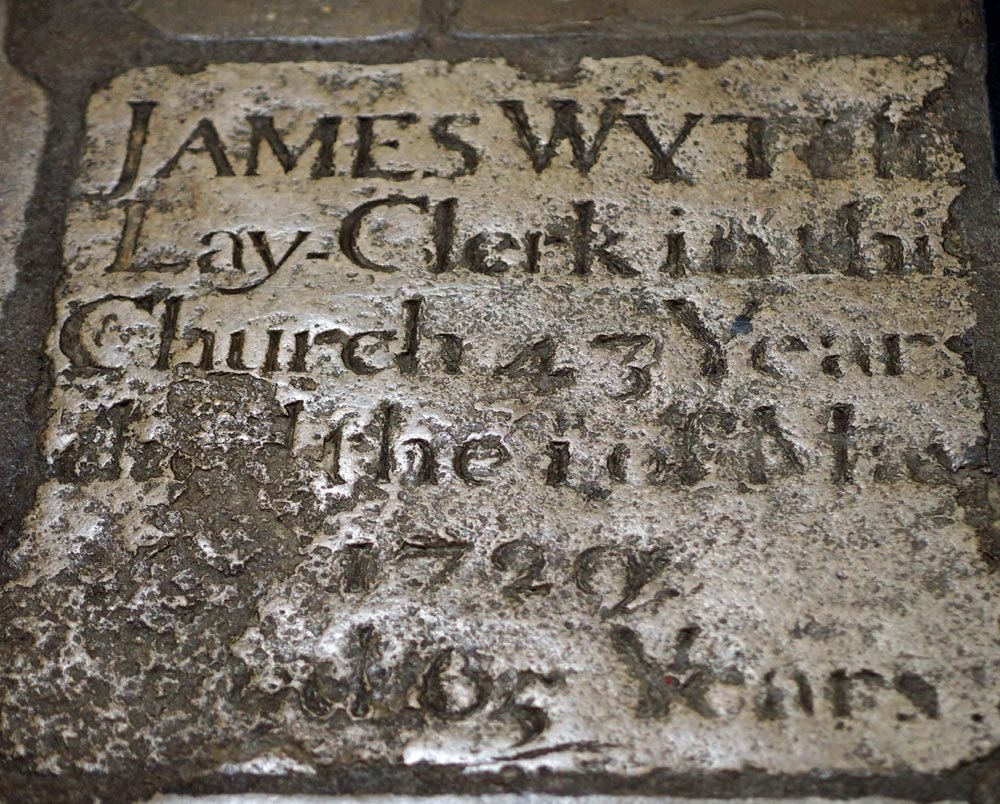 JAMES WYTH
Lay-Clerk in this
Church 43 Years
the
1729
65 Years